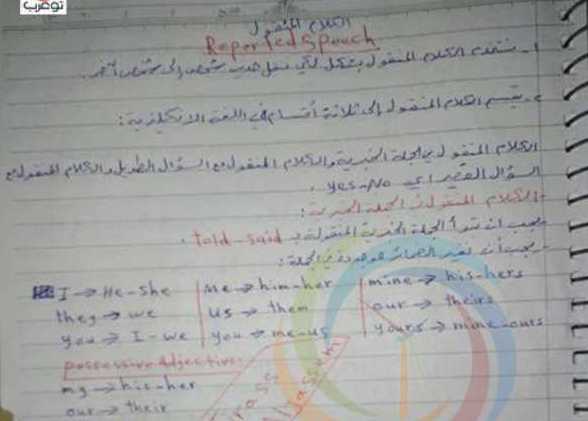 توعرب
الكلام المنقول
Reported Speech
1- نستخدم الكلام المنقول بشكل لكي ننقل حديث شخص إلى شخص آخر.
2- يقسم الكلام المنقول إلى ثلاثة أقسام في اللغة الانكليزية:
الكلام المنقول في الجملة الخبرية والكلام المنقول مع السؤال الطويل والكلام المنقول مع
السؤال القصير أي yes-No.
الكلام المنقول في الجملة الخبرية:
- يجب ان تبدأ الجملة الخبرية المنقولة بـ told - said.
- يجب أن نغير الضمائر الموجودة في الجملة:
I → He - She | me → him - her | mine → his - hers
they → we | us → them | our → theirs
you → I - we | you → me - us | yours → mine - ours
possessive Adjective:
my → his - her
our → their